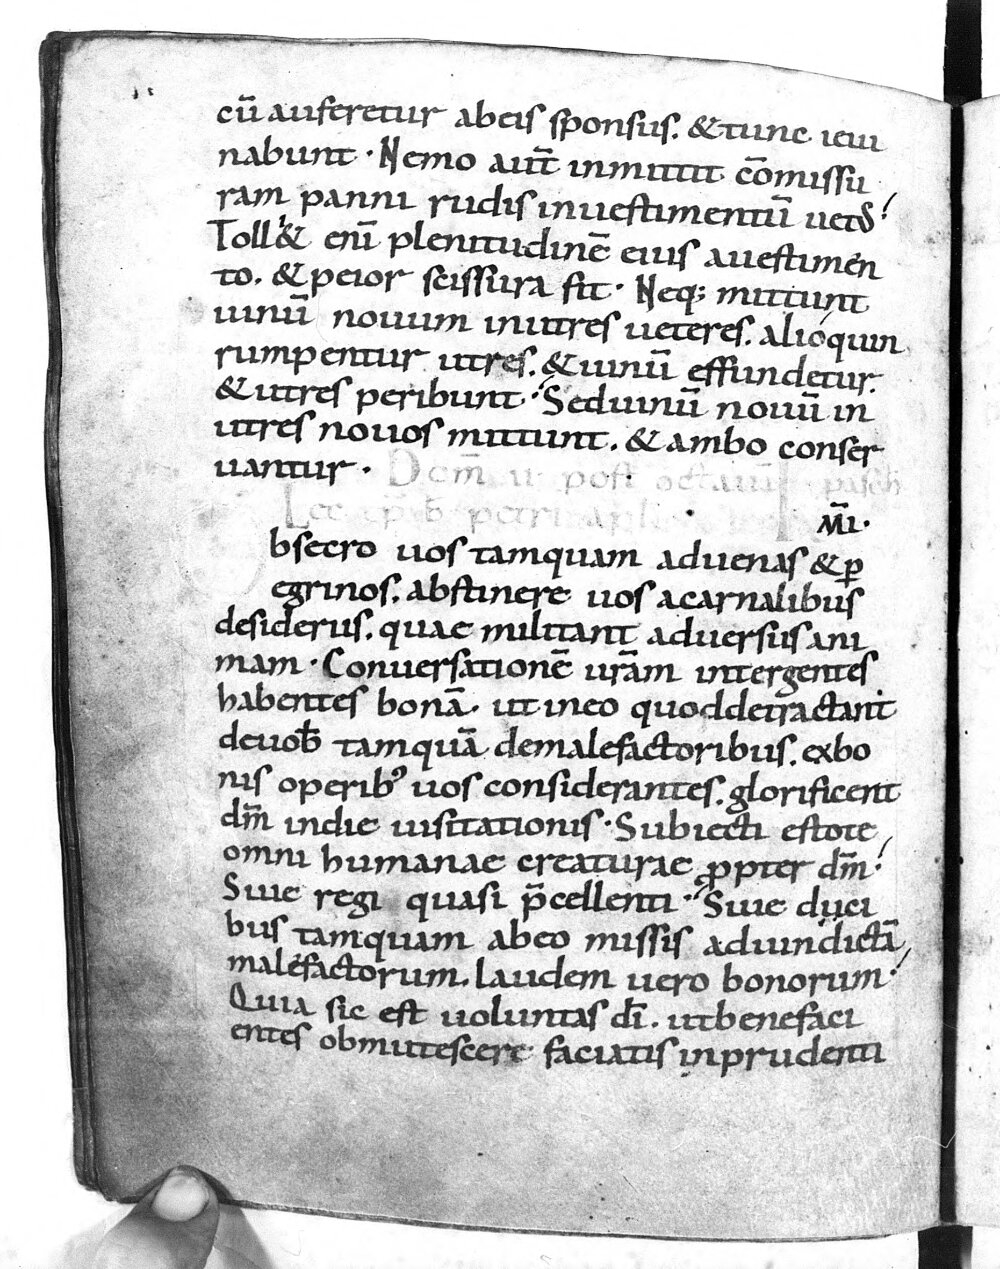 cū auferetur abeis sponsus. & tunc ieiu
nabunt · Nemo aut̄ inmittit c̄omissu
ram panni rudis inuestimentū uetus
Toll& eni̅ plenitudinē eius auestimen
to. & peior scissura fit · Neq; mittunt
uinū nouum inutres ueteres. alioquin
rumpentur utres. & uinū effundetur.
& utres peribunt · Seduinū nouū in
utres nouos mittunt. & ambo conser
uantur ·
Dom̄ ii post octauū pasch
Lec ep̄ b petri apli
M̄I·
bsecro uos tamquam aduenas & p̲
egrinos. abstinere uos acarnalibus
desideriis. quae militant aduersus ani
mam · Conuersationē ur̄am intergentes
habentes bonā. ut ineo quoddetractant
deuob̄ tamquā demalefactoribus. exbo
nis operib; uos considerantes. glorificent
dm̄ indie uisitationis · Subiecti estote
omni humanae creaturae ꝓpter dm̄.
Siue regi quasi p̄cellenti · Siue duci
bus tamquam abeo missis aduindictā
malefactorum. laudem uero bonorum ·
Quia sic est uoluntas dī. utbenefaci
entes obmutescere faciatis inprudenti